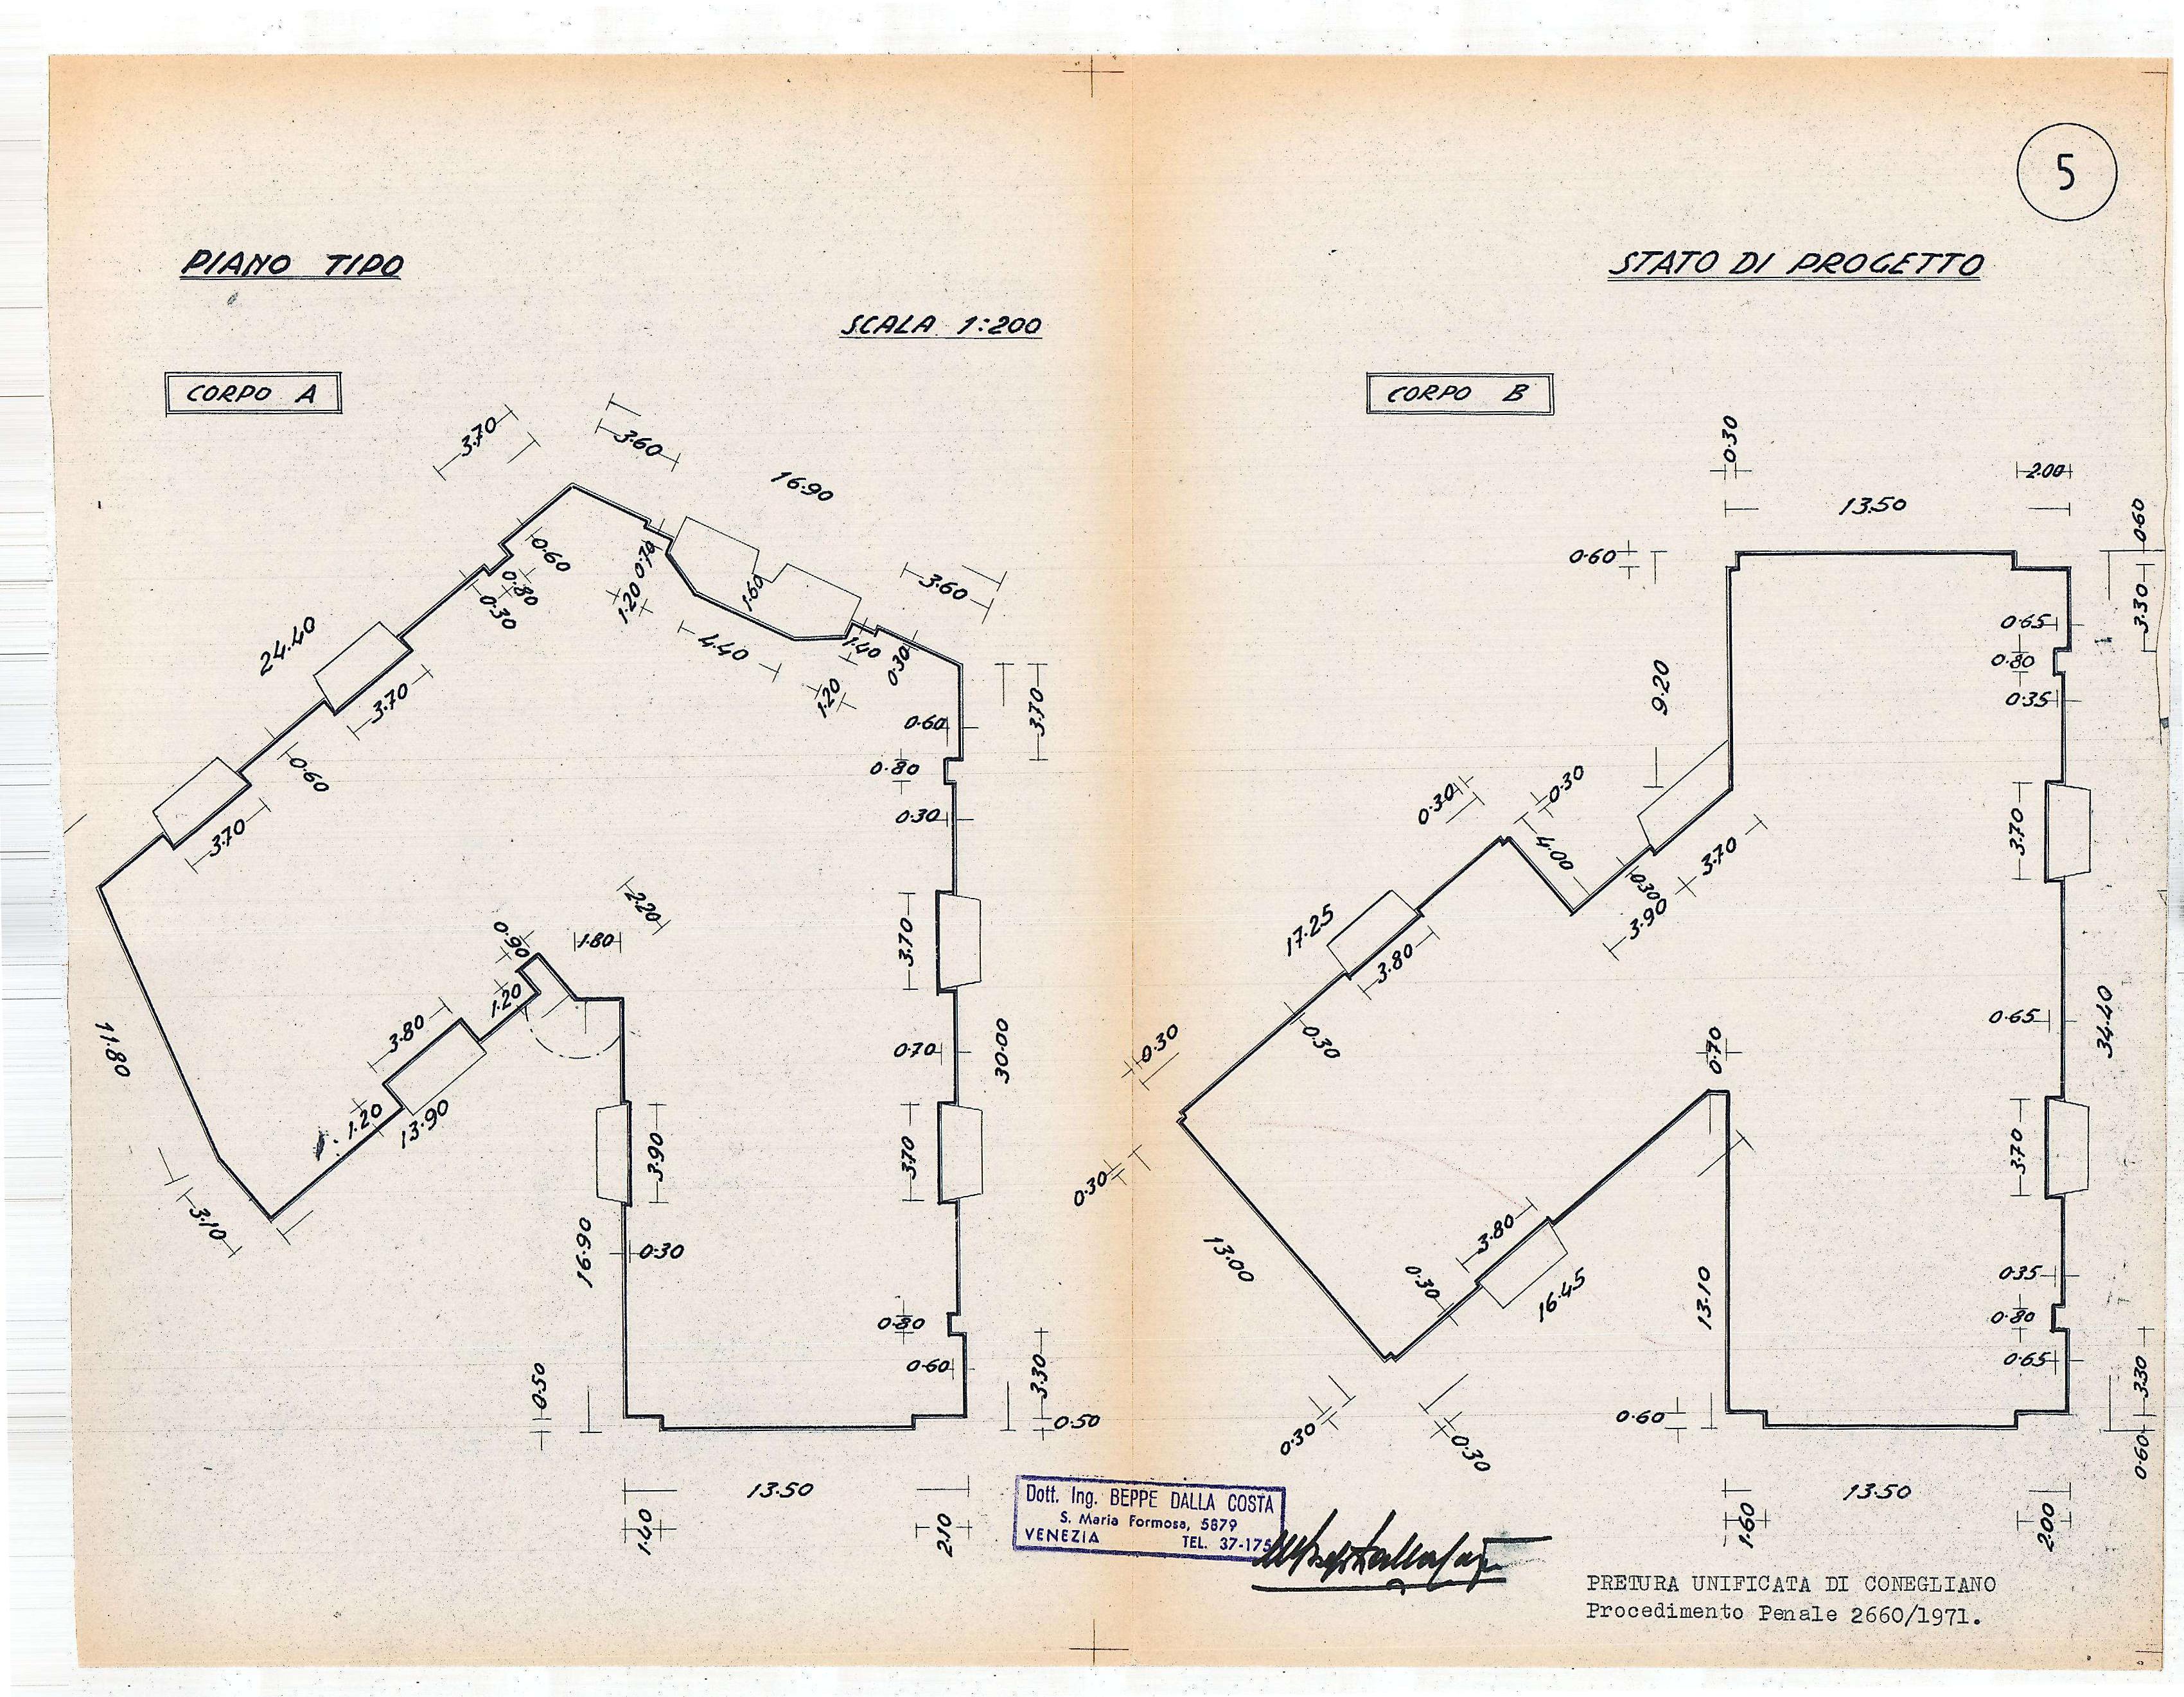 5
PIANO TIPO
STATO DI PROGETTO
SCALA 1:200
CORPO A
3.70
3.60
16.90
24.40
0.60
0.80
0.30
0.70
1.20
1.60
4.40
3.60
1.40
0.30
1.20
3.70
3.70
0.60
0.60
0.80
3.70
0.30
3.70
2.20
1.80
0.90
3.70
1.20
11.80
3.80
0.70
30.00
1.20
13.90
3.90
3.70
3.10
16.90
0.30
0.80
0.60
3.30
0.50
0.50
13.50
1.40
2.10
CORPO B
0.30
2.00
13.50
0.60
0.60
3.30
0.65
0.80
9.20
0.35
0.30
0.30
4.00
3.70
3.70
0.30
3.90
17.25
3.80
0.30
0.65
34.40
0.30
0.70
0.30
3.70
13.00
3.80
0.30
16.45
13.10
0.35
0.80
0.65
3.30
0.30
0.30
0.60
0.60
13.50
1.60
2.00
Dott. Ing. BEPPE DALLA COSTA
S. Maria Formosa, 5879
VENEZIA TEL. 37-175
PRETURA UNIFICATA DI CONEGLIANO
Procedimento Penale 2660/1971.